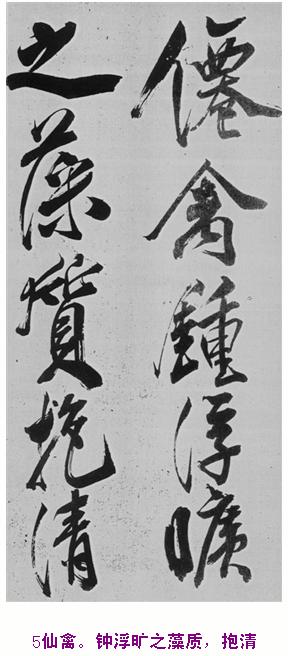 僊禽鍾浮曠
之藻質抱清
5仙禽。钟浮旷之藻质，抱清